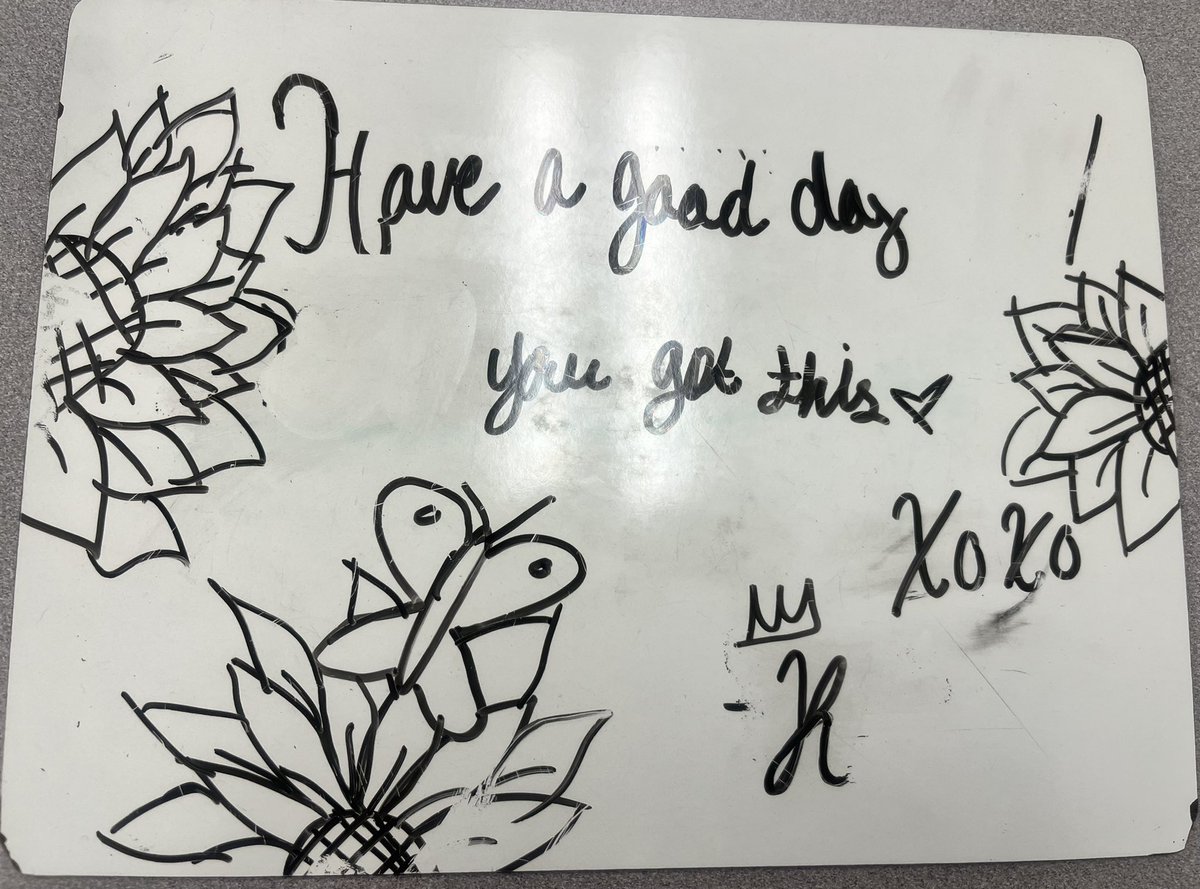 Have a good day
you got this♡
XOXO
- K